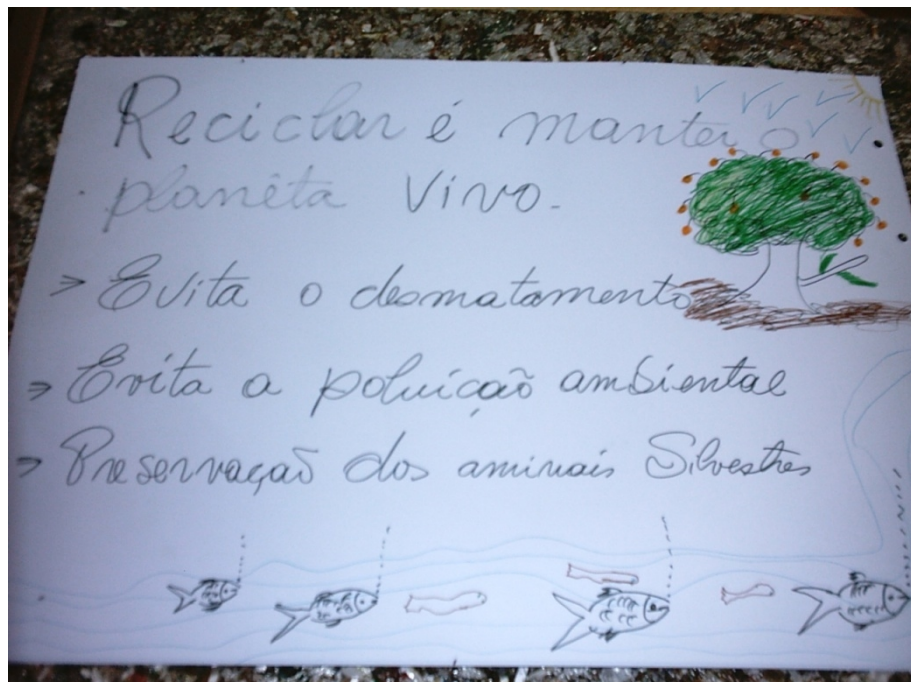 Reciclar é manter o
planêta vivo.
> Evita o desmatamento
> Evita a poluição ambiental
> Preservação dos aminais Silvestres